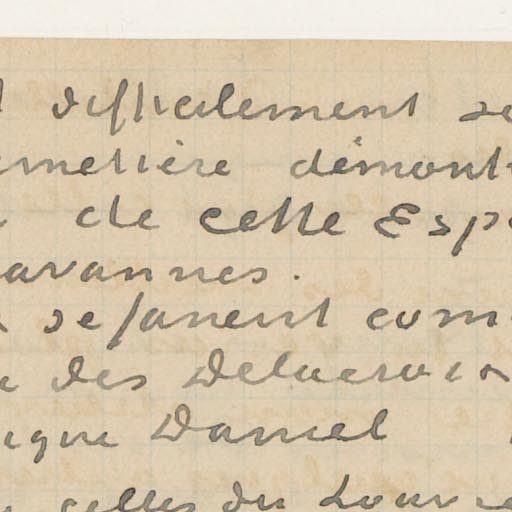 difficilement se
cimetière démont
de cette Esp
avannes.
se fanent com
des Delacroix
ique Daniel
celles du Louvre